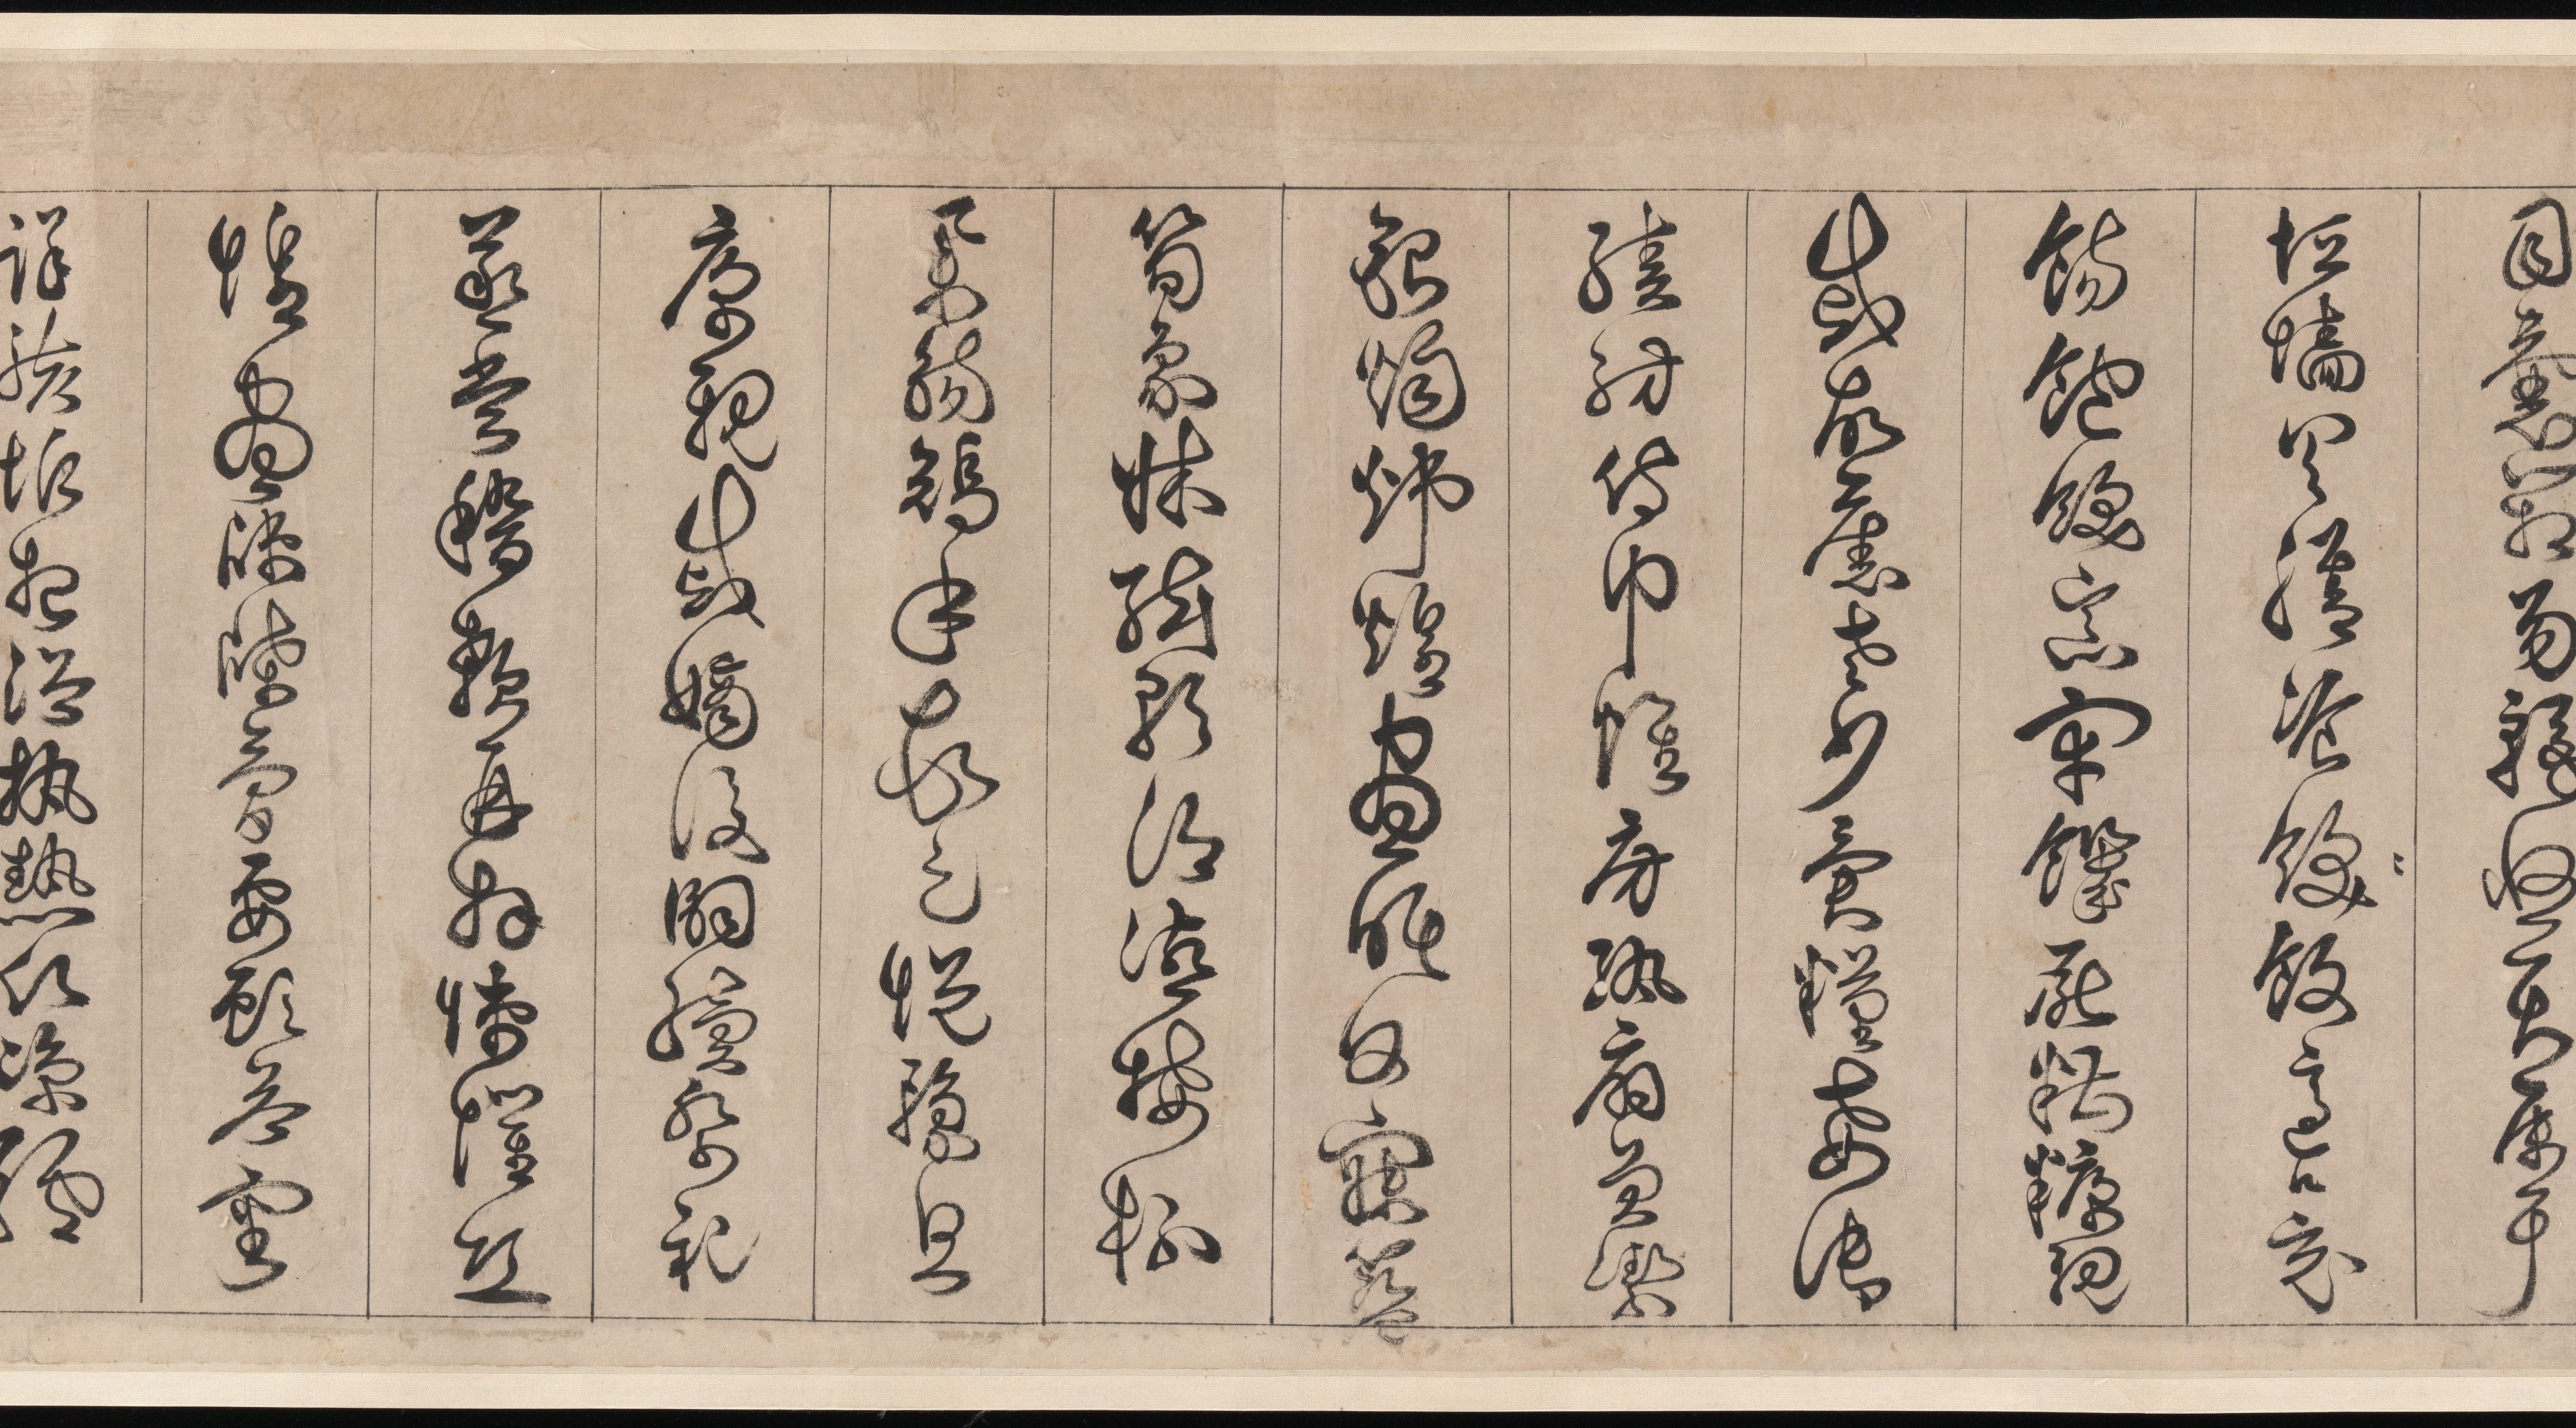 目囊箱易輶攸畏屬耳
垣墻具膳飡飯飯適口充
腸飽飫烹宰饑厭糟糠親
戚故舊老少異糧妾御
績紡侍巾帷房紈扇圓潔
銀燭煒煌晝眠夕寐藍
筍象牀絃歌酒讌接杯
舉觴矯手頓足悅豫且
康親戚嫡後嗣續祭祀
蒸嘗稽顙再拜悚懼恐
惶晝牋牒簡要顧答審
詳骸垢想浴執熱願涼驢